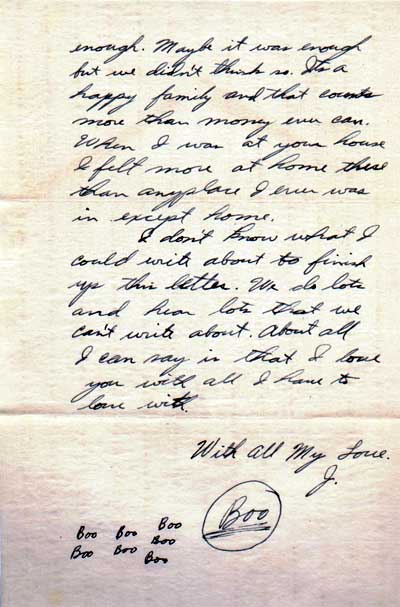 enough. Maybe it was enough
but we didn't think so. Its a
happy family and that counts
more than money ever can.
When I was at your house
I felt more at home there
than anyplace I ever was
in except home.
I don't know what I
could write about to finish
up this letter. We do lots
and hear lots that we
can't write about. About all
I can say is that I love
you with all I have to
love with.
With All My Love.
J.
Boo
Boo Boo Boo
Boo Boo Boo
Boo